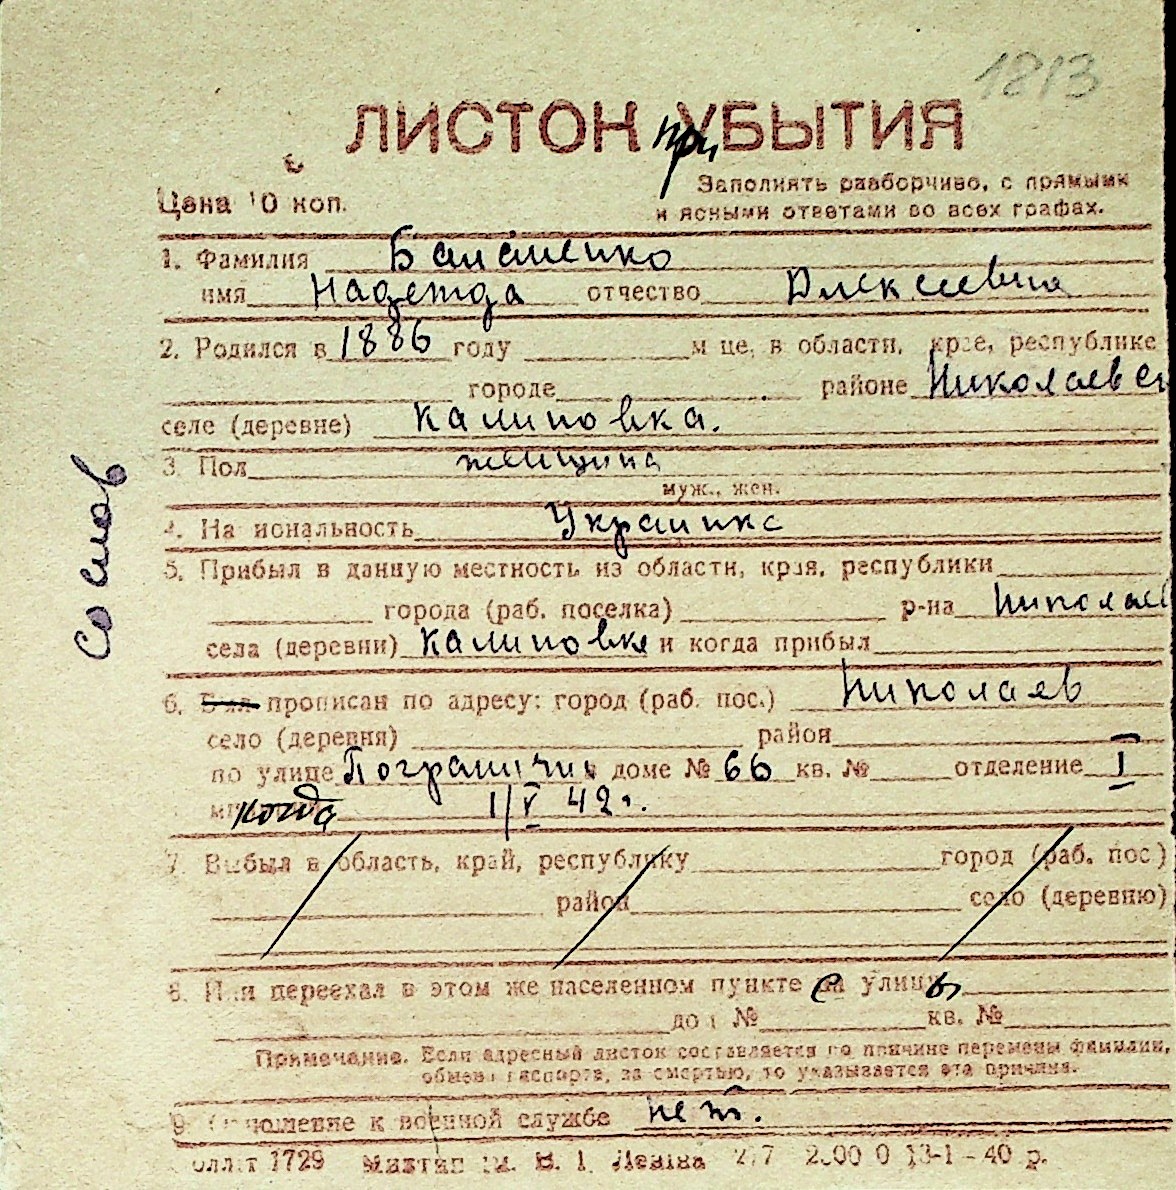 1813
ЛИСТОК при УБЫТИЯ
Цена 10 коп.
Заполнять разборчиво, с прямыми
и ясными ответами во всех графах.
1. Фамилия
имя Надежда отчество Алексеевна
2. Родился в 1886 году м-це, в области, крае, республике
городе районе Николаевск
селе (деревне) Калиновка.
3. Пол женщина
муж., жен.
4. Национальность Украинка
5. Прибыл в данную местность из области, края, республики
города (раб. поселка) р-на Николаев
села (деревни) Калиновка и когда прибыл
6. Был прописан по адресу: город (раб. пос.) Николаев
село (деревня) район
по улице Погранични доме № 66 кв. № отделение I
когда 1/V 42 г.
7. Выбыл в область, край, республику город (раб. пос)
район село (деревню)
8. Или переехал в этом же населенном пункте с улицы
дом № кв. №
Примечание. Если адресный листок составляется по причине перемены фамилии,
обмена паспорта, за смертью, то указывается эта причина.
9. Отношение к военной службе нет.
1729 им. В. І. Леніна 13-1-40 р.